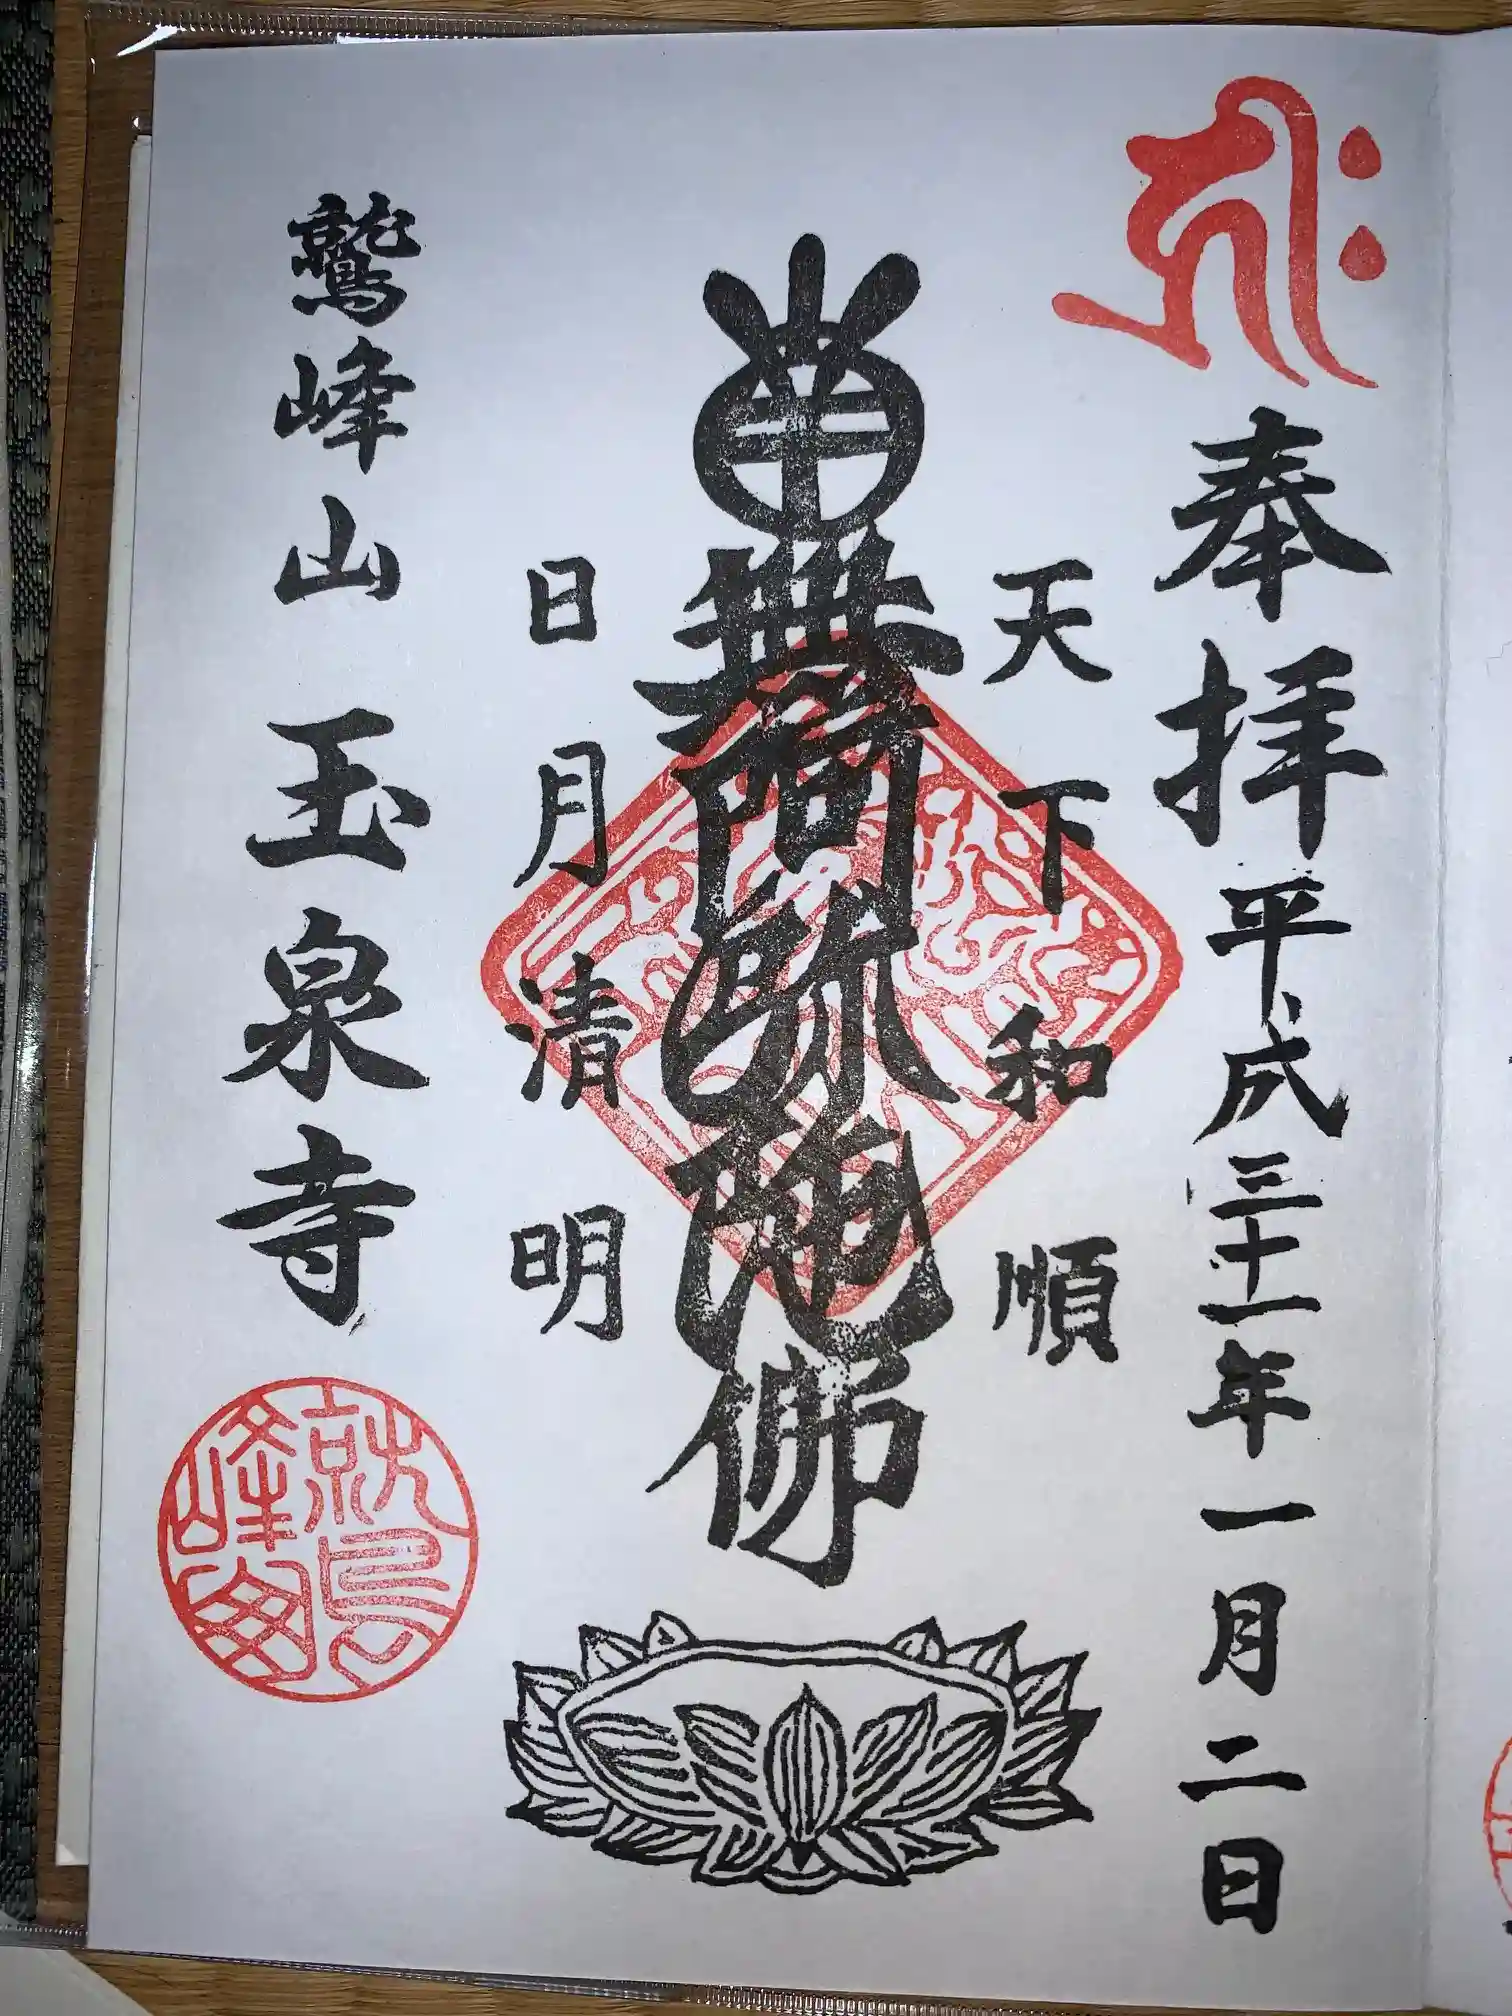 奉拝 平成三十一年一月二日
天下和順
南無阿弥陀佛
日月清明
鷲峰山 玉泉寺